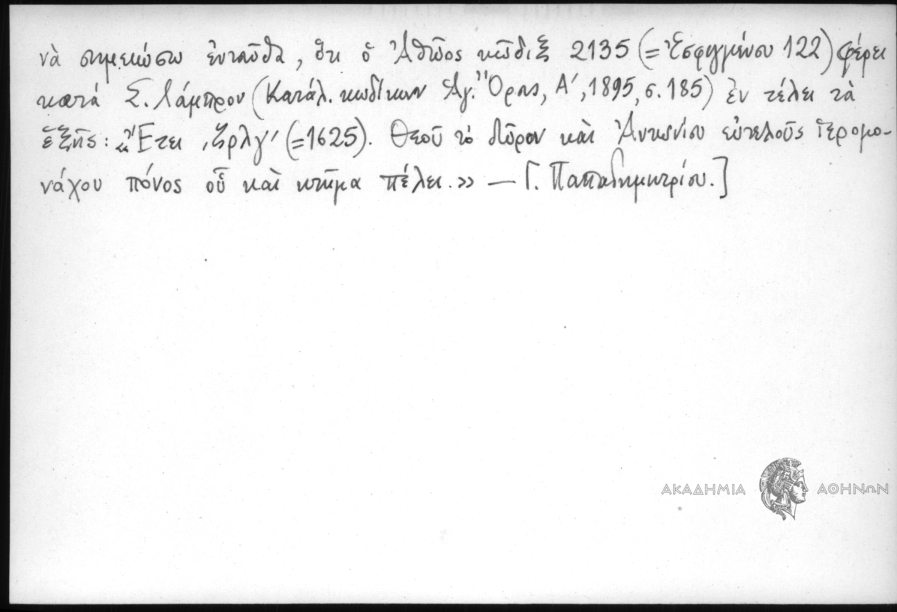 νὰ σημειώσω ἐνταῦθα, ὅτι ὁ Ἀθῷος κῶδιξ 2135 (= Ἐσφιγμένου 122) φέρει
κατά Σ. Λάμπρον (Κατάλ. κωδίκων Ἁγ. Ὄρους, Α΄, 1895, σ. 185) ἐν τέλει τὰ
ἑξῆς: «Ἔτει ͵ζρλγ΄ (=1625). Θεοῦ τὸ δῶρον καὶ Ἀντωνίου εὐτελοῦς ἱερομο-
νάχου πόνος οὗ καὶ κτῆμα πέλει.» — Γ. Παπαδημητρίου.]
ΑΚΑΔΗΜΙΑ ΑΘΗΝΩΝ